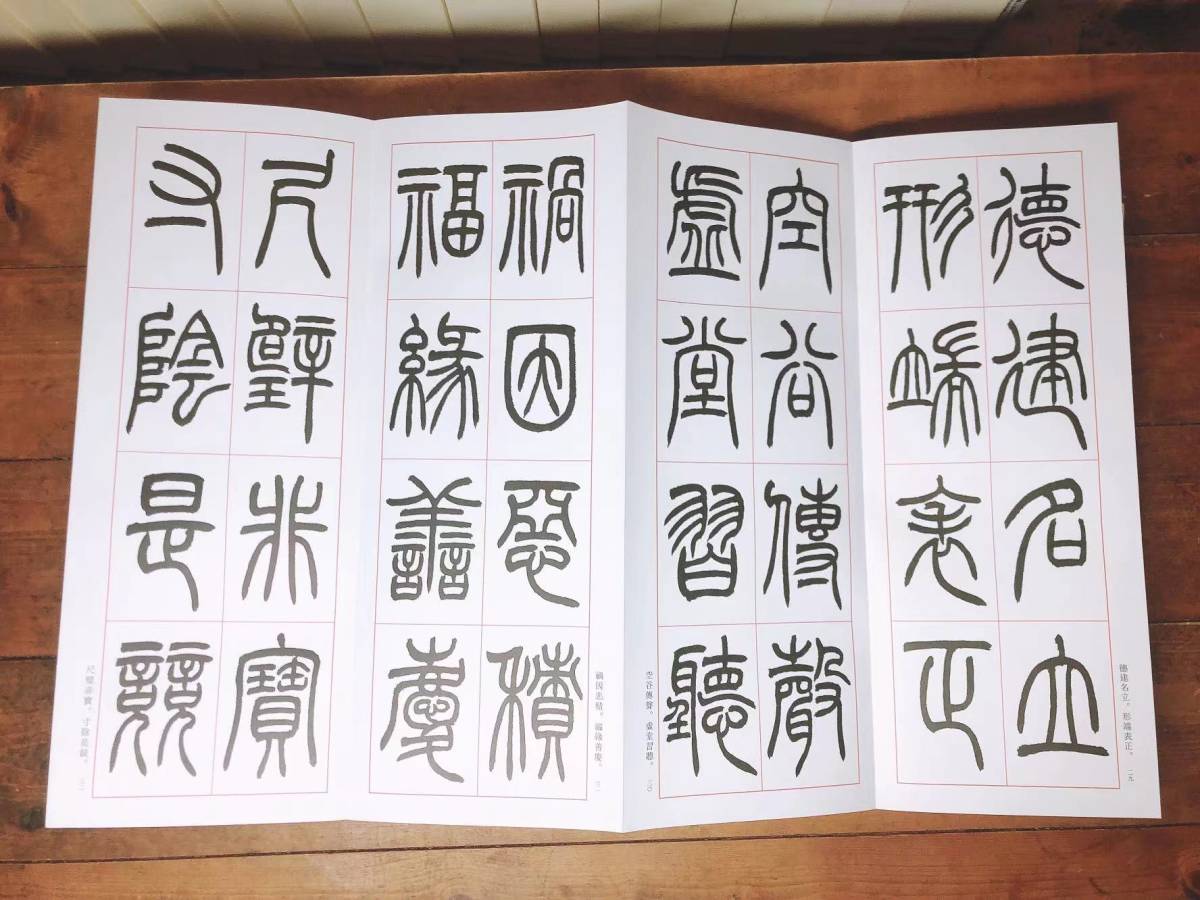 德建名立
形端表正
德建名立。形端表正。 二九
空谷傳聲
虛堂習聽
空谷傳聲。虛堂習聽。 三〇
禍因惡積
福緣善慶
禍因惡積。福緣善慶。 三一
尺璧非寶
寸陰是競
尺璧非寶。寸陰是競。